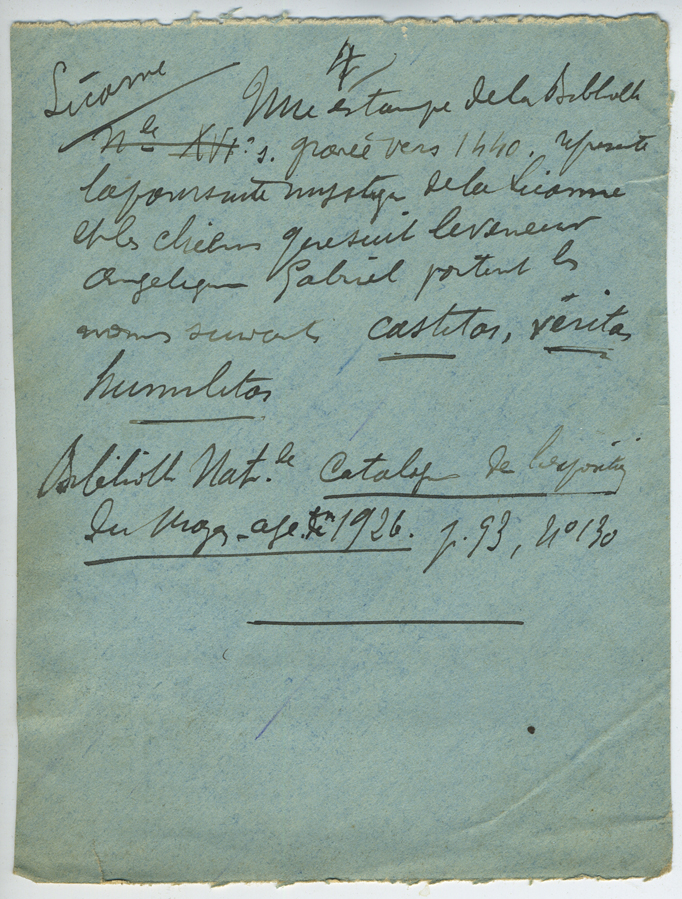 4
Licorne
Une estampe de la Biblioth
Nle XVe s. gravée vers 1440. represente
la poursuite mystique de la Licorne
et les chiens que suit le veneur
angelique Gabriel portent les
noms suivants castitas, véritas
humilitas
Biblioth Natle Catalogue de l'exposition
du Moyen-age 1926. p. 93, No 130